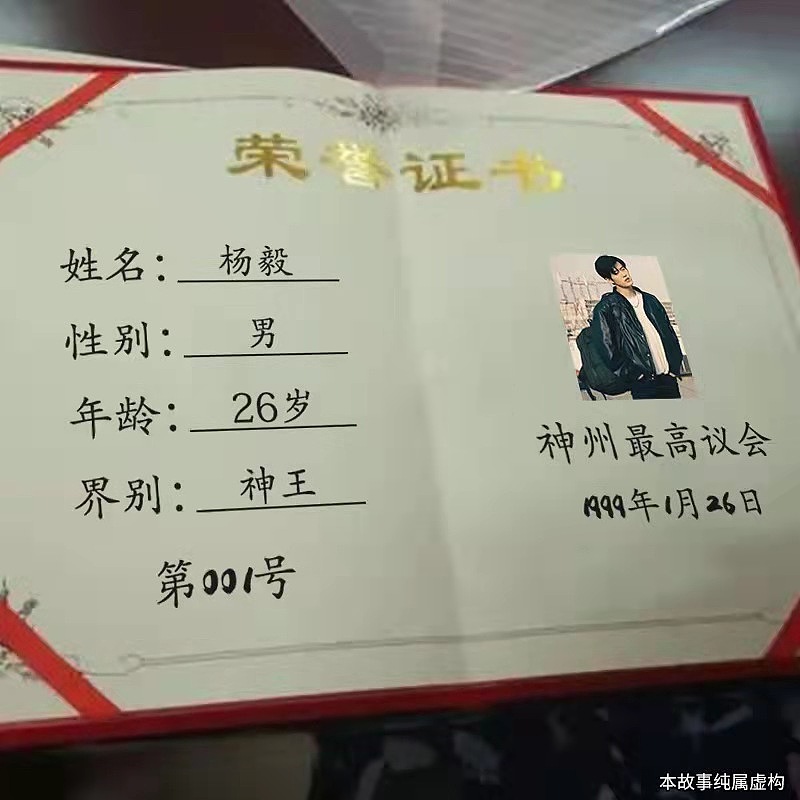 荣誉证书
姓名：杨毅
性别：男
年龄：26岁
界别：神王
第001号
神州最高议会
1999年1月26日
本故事纯属虚构